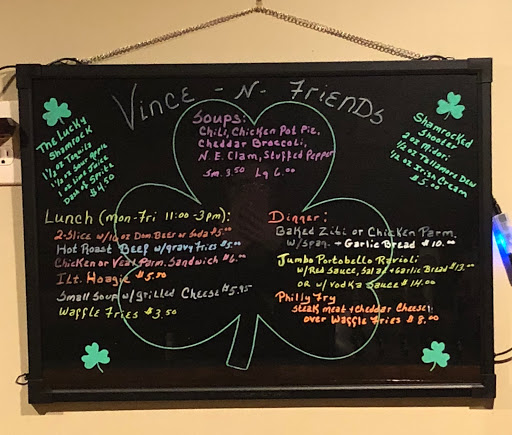 Vince - N - Friends
The Lucky
Shamrock
1 1/2 oz Tequila
1 1/2 oz Sour Apple
1 oz Lime Juice
Dash of Sprite
$4.50
Soups:
Chili, Chicken Pot Pie,
Cheddar Broccoli,
N.E. Clam, Stuffed Pepper
Sm. 3.50 Lg 6.00
Shamrocked
Shooter
2 oz Midori
1/2 oz Tullamore Dew
1/2 oz Irish Cream
$5.00
Lunch (Mon-Fri 11:00 - 3pm):
2-Slice w/16 oz Dom. Beer or Soda $5.00
Hot Roast Beef w/gravy fries $5.00
Chicken or Veal Parm. Sandwich $6.00
Itl. Hoagie $5.50
Small Soup w/Grilled Cheese $5.95
Waffle Fries $3.50
Dinner:
Baked Zibi or Chicken Parm.
w/spag. + Garlic Bread $10.00
Jumbo Portobello Ravioli
w/Red Sauce, Salad + Garlic Bread $13.00
or w/ Vodka Sauce $14.00
Philly Fry
Steak Meat + Cheddar Cheese
over Waffle Fries $8.00